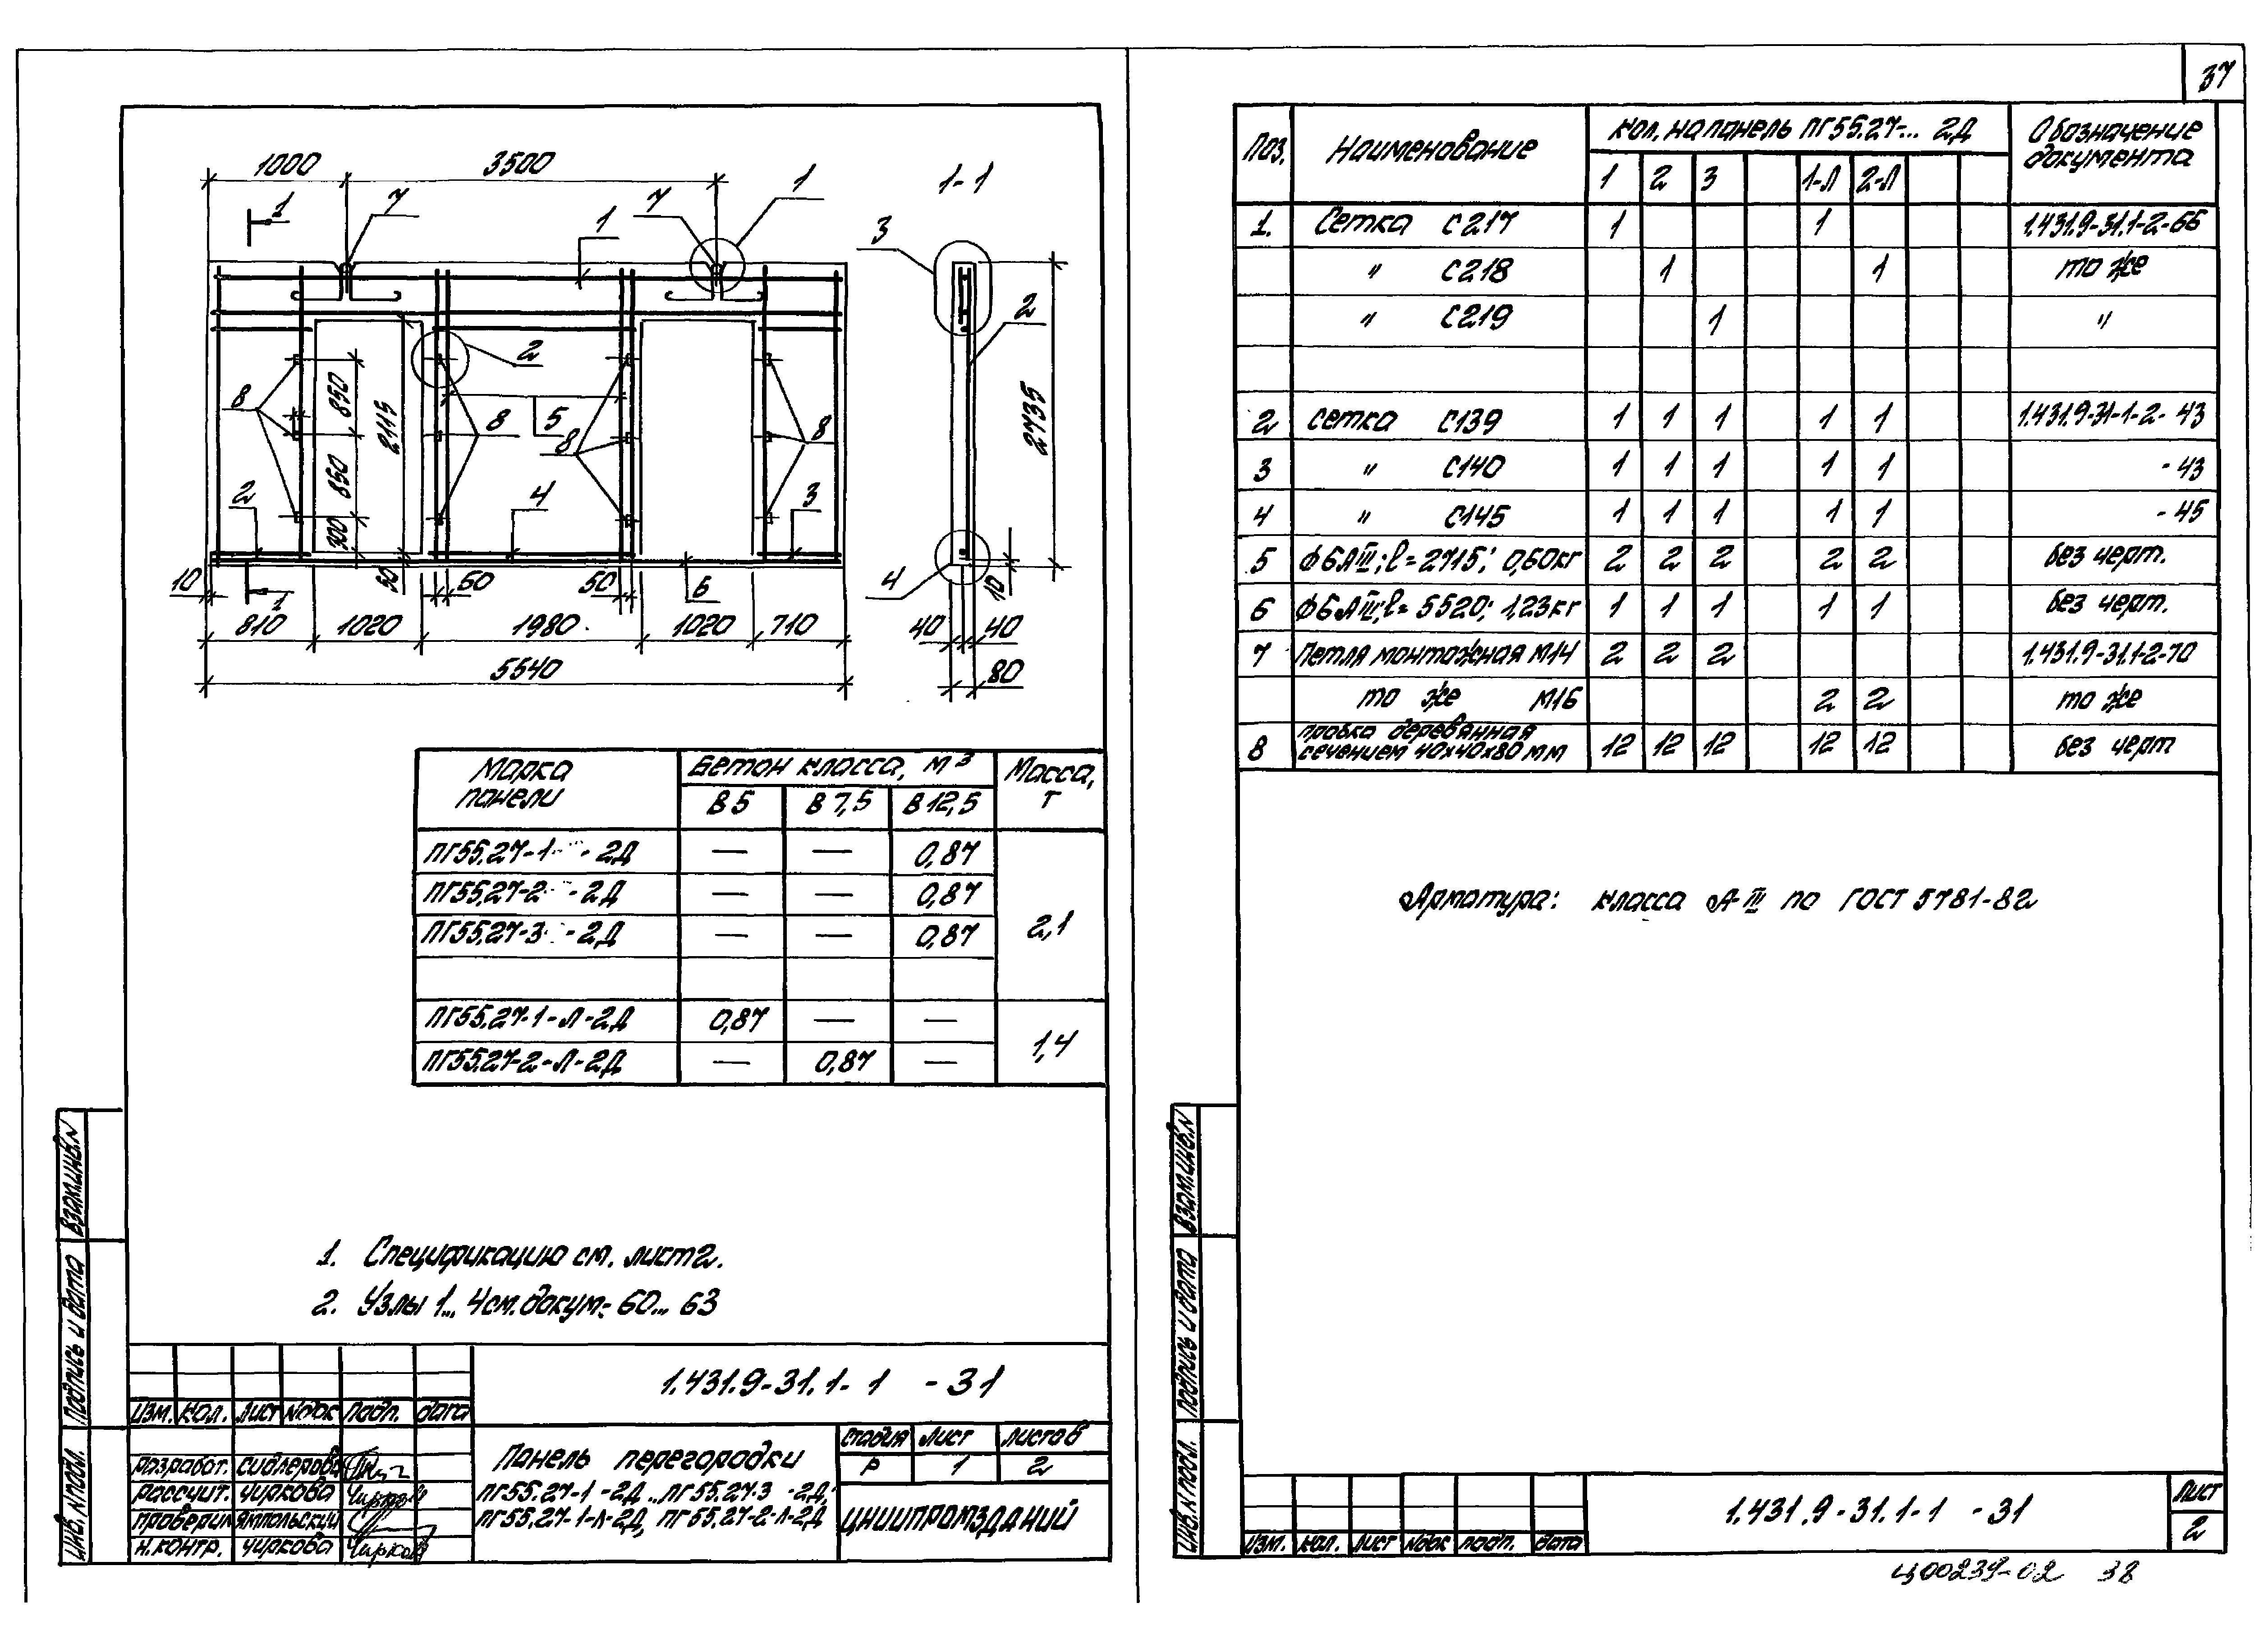 37
1000
3500
1
1-1
1
7
7
1
3
2
2
8
850
2115
8
5
8
8
2735
850
2
4
3
300
10
50
60
50
6
4
10
1
810
1020
1980
1020
710
40
40
5540
80
Марка панели
Бетон класса, м³
Масса, т
В 5
В 7,5
В 12,5
ПГ55.27-1- -2Д — — 0,87
ПГ55.27-2 -2Д — — 0,87
ПГ55.27-3 -2Д — — 0,87
2,1
ПГ55.27-1-Л-2Д 0,87 — —
ПГ55.27-2-Л-2Д — 0,87 —
1,4
1. Спецификацию см. лист 2.
2. Узлы 1... 4 см. докум.- 60... 63
Взам.инв.N
Подпись и дата
Инв. N подл.
1.431.9-31.1-1 -31
Изм. Кол. Лист Nдок Подп. Дата
Разработ. Сидлерова
Рассчит. Чиркова
Проверил Ямпольский
Н.контр. Чиркова
Панель перегородки
ПГ55.27-1 -2Д...ПГ55.27-3 -2Д;
ПГ55.27-1-Л-2Д, ПГ55.27-2-Л-2Д
Стадия Лист Листов
Р 1 2
ЦНИИПРОМЗДАНИЙ
Поз. Наименование Кол. на панель ПГ55.27-... 2Д Обозначение документа
1 2 3 1-Л 2-Л
1. Сетка С217 1 1 1.431.9-31.1-2-66
" С218 1 1 то же
" С219 1 "
2 Сетка С139 1 1 1 1 1 1.431.9-31-1-2-43
3 " С140 1 1 1 1 1 -43
4 " С145 1 1 1 1 1 -45
5 Ф6АIII; ℓ=2715; 0,60кг 2 2 2 2 2 без черт.
6 Ф6АIII; ℓ= 5520; 1,23кг 1 1 1 1 1 без черт.
7 Петля монтажная М14 2 2 2 1.431.9-31.1-2-70
то же М16 2 2 то же
8 Пробка деревянная сечением 40х40х80 мм 12 12 12 12 12 без черт
Арматура: класса А-III по ГОСТ 5781-82
Взам.инв.N
Подпись и дата
Инв. N подл.
Изм. Кол. Лист Nдок Подп. Дата
1.431.9-31.1-1 -31
Лист
2
Ц00239-02 38